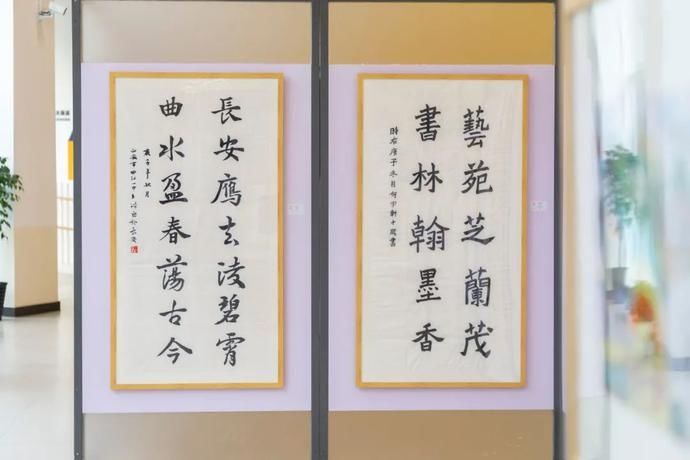 長安鷹去淩碧霄
曲水盈春蕩古今
藝苑芝蘭茂
書林翰墨香